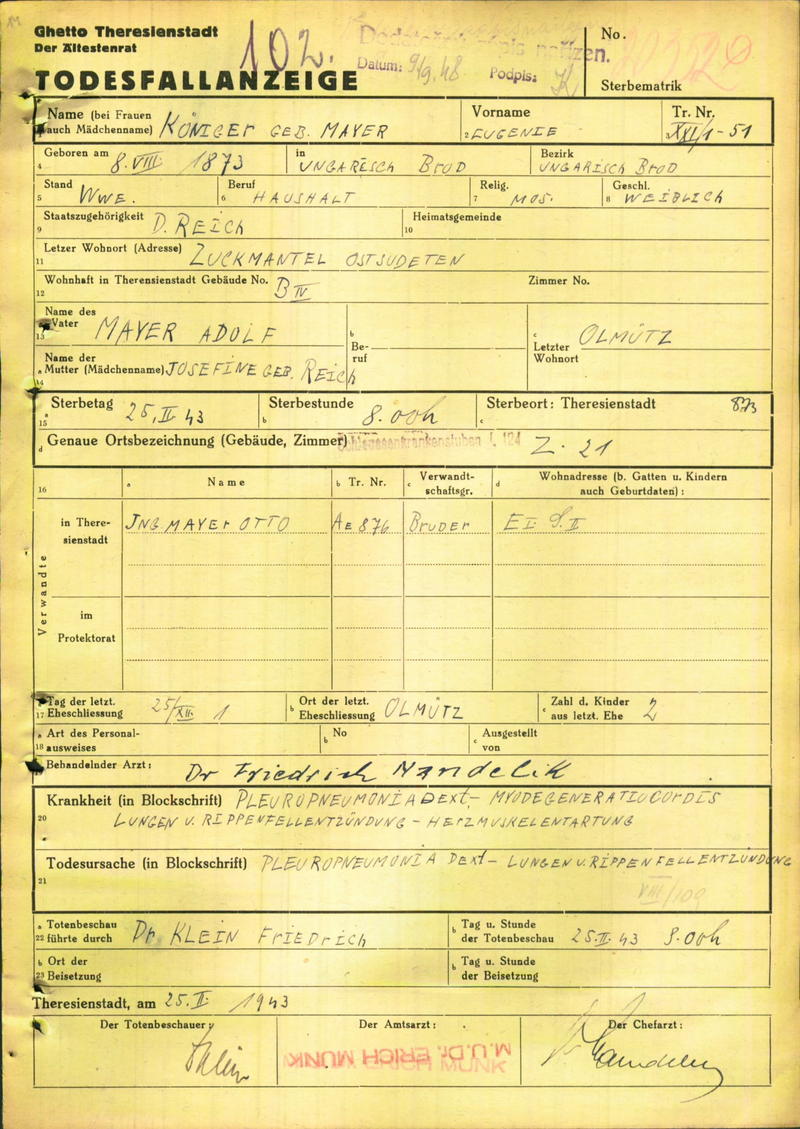 Ghetto Theresienstadt
Der Ältestenrat
TODESFALLANZEIGE
102.
Datum: 9/9.48 Podpis:
No.
Sterbematrik
Name (bei Frauen auch Mädchenname) KÖNIGER GEB. MAYER
Vorname EUGENIE
Tr. Nr. XXI/1-51
4 Geboren am 8. VIII. 1873
in UNGARISCH BROD
Bezirk UNGARISCH BROD
5 Stand WWE.
6 Beruf HAUSHALT
7 Relig. MOS.
8 Geschl. WEIBLICH
9 Staatszugehörigkeit D. REICH
10 Heimatsgemeinde
11 Letzer Wohnort (Adresse) ZUCKMANTEL OSTSUDETEN
12 Wohnhaft in Therensienstadt Gebäude No. B IV
Zimmer No.
13 Name des Vater MAYER ADOLF
b Beruf
c Letzter Wohnort OLMÜTZ
a 14 Name der Mutter (Mädchenname) JOSEFINE GEB. REICH
a 15 Sterbetag 25. II. 43
b Sterbestunde 8.00h
c Sterbeort: Theresienstadt
d Genaue Ortsbezeichnung (Gebäude, Zimmer) Z. 21
16
a Name
b Tr. Nr.
c Verwandtschaftsgr.
d Wohnadresse (b. Gatten u. Kindern auch Geburtdaten):
Verwandte
in Theresienstadt
ING MAYER OTTO AE 876 BRUDER
im Protektorat
17 Tag der letzt. Eheschliessung 25/XII. 1
b Ort der letzt. Eheschliessung OLMÜTZ
c Zahl d. Kinder aus letzt. Ehe 2
a 18 Art des Personalausweises
b No
c Ausgestellt von
Behandelnder Arzt: Dr Friedrich Mandelik
20 Krankheit (in Blockschrift) PLEUROPNEUMONIA DEXT- MYODEGENERATIO CORDIS
LUNGEN U. RIPPENFELLENTZÜNDUNG - HERZMUSKELENTARTUNG
21 Todesursache (in Blockschrift) PLEUROPNEUMONIA DEXT- LUNGEN U. RIPPENFELLENTZÜNDUNG
VIII/109
a 22 Totenbeschau führte durch Dr. KLEIN FRIEDRICH
b Tag u. Stunde der Totenbeschau 25. II. 43 8.00h
b 23 Ort der Beisetzung
b Tag u. Stunde der Beisetzung
Theresienstadt, am 25. II. 1943
Der Totenbeschauer: Klein
Der Amtsarzt: M.U.Dr. ERICH MUNK
Der Chefarzt: